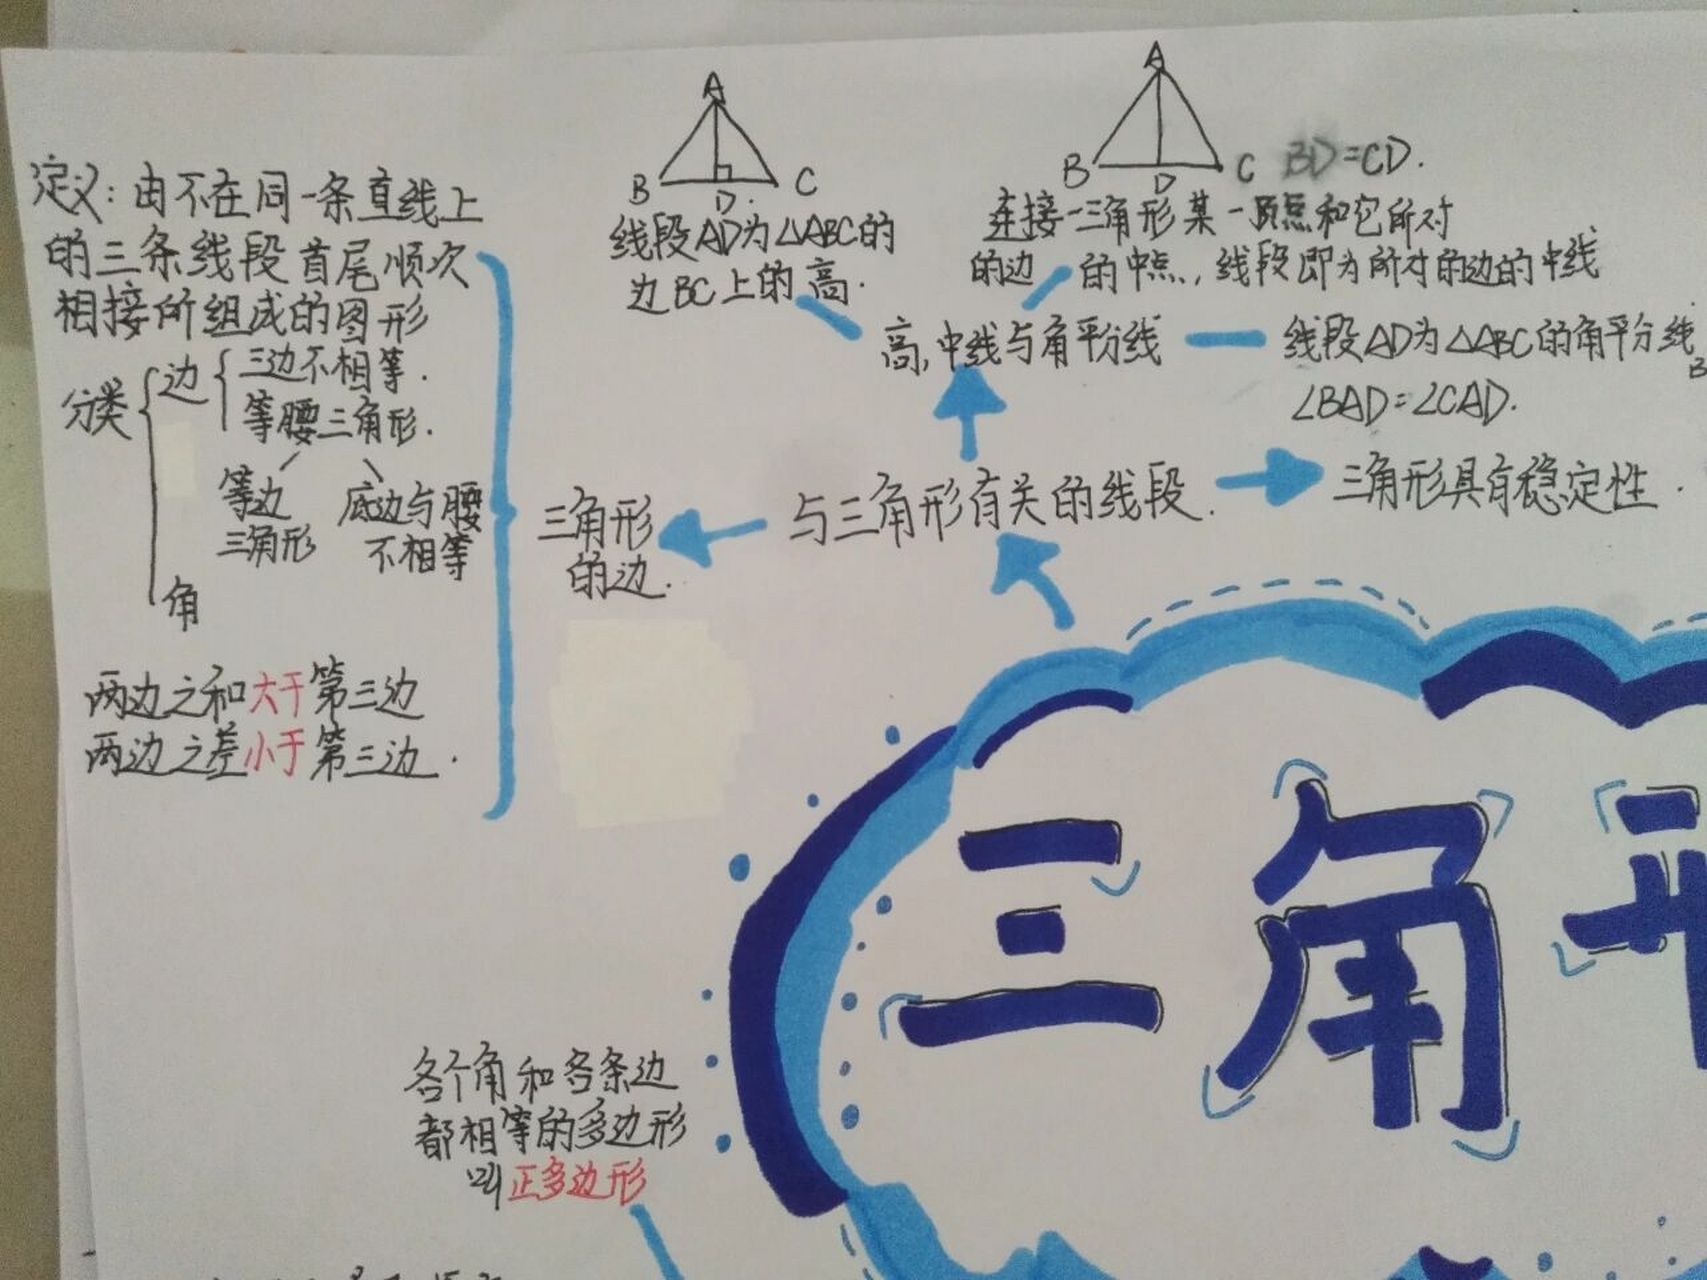 定义：由不在同一条直线上
的三条线段首尾顺次
相接所组成的图形
分类
边
三边不相等.
等腰三角形.
等边
三角形
底边与腰
不相等
角
两边之和大于第三边
两边之差小于第三边.
三角形
的边.
A
B
D.
C
线段AD为△ABC的
边BC上的高.
A
B
D
C
BD=CD.
连接一三角形某一顶点和它所对
的边 的中点,线段即为所对的边的中线
高,中线与角平分线
线段AD为△ABC的角平分线
B
∠BAD=∠CAD.
与三角形有关的线段.
三角形具有稳定性.
三角
各个角和各条边
都相等的多边形
叫正多边形